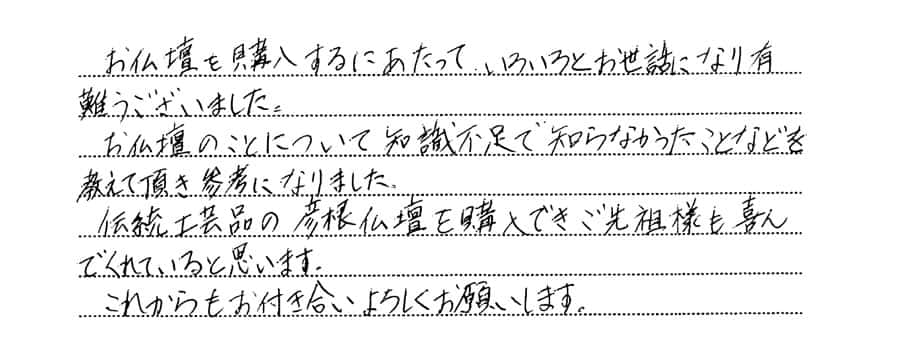 お仏壇を購入するにあたって、いろいろとお世話になり有
難うございました。
お仏壇のことについて知識不足で知らなかったことなどを
教えて頂き参考になりました。
伝統工芸品の彦根仏壇を購入できご先祖様も喜ん
でくれていると思います。
これからもお付き合いよろしくお願いします。